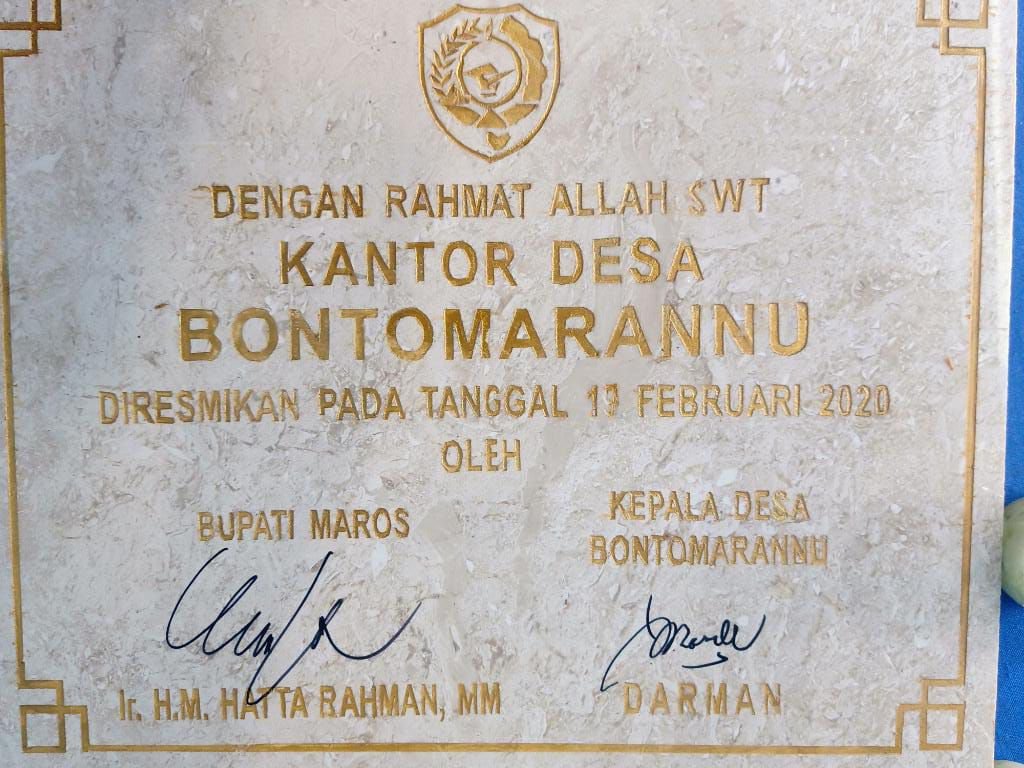 DENGAN RAHMAT ALLAH SWT
KANTOR DESA
BONTOMARANNU
DIRESMIKAN PADA TANGGAL 13 FEBRUARI 2020
OLEH
BUPATI MAROS
Ir. H.M. HATTA RAHMAN, MM
KEPALA DESA
BONTOMARANNU
DARMAN